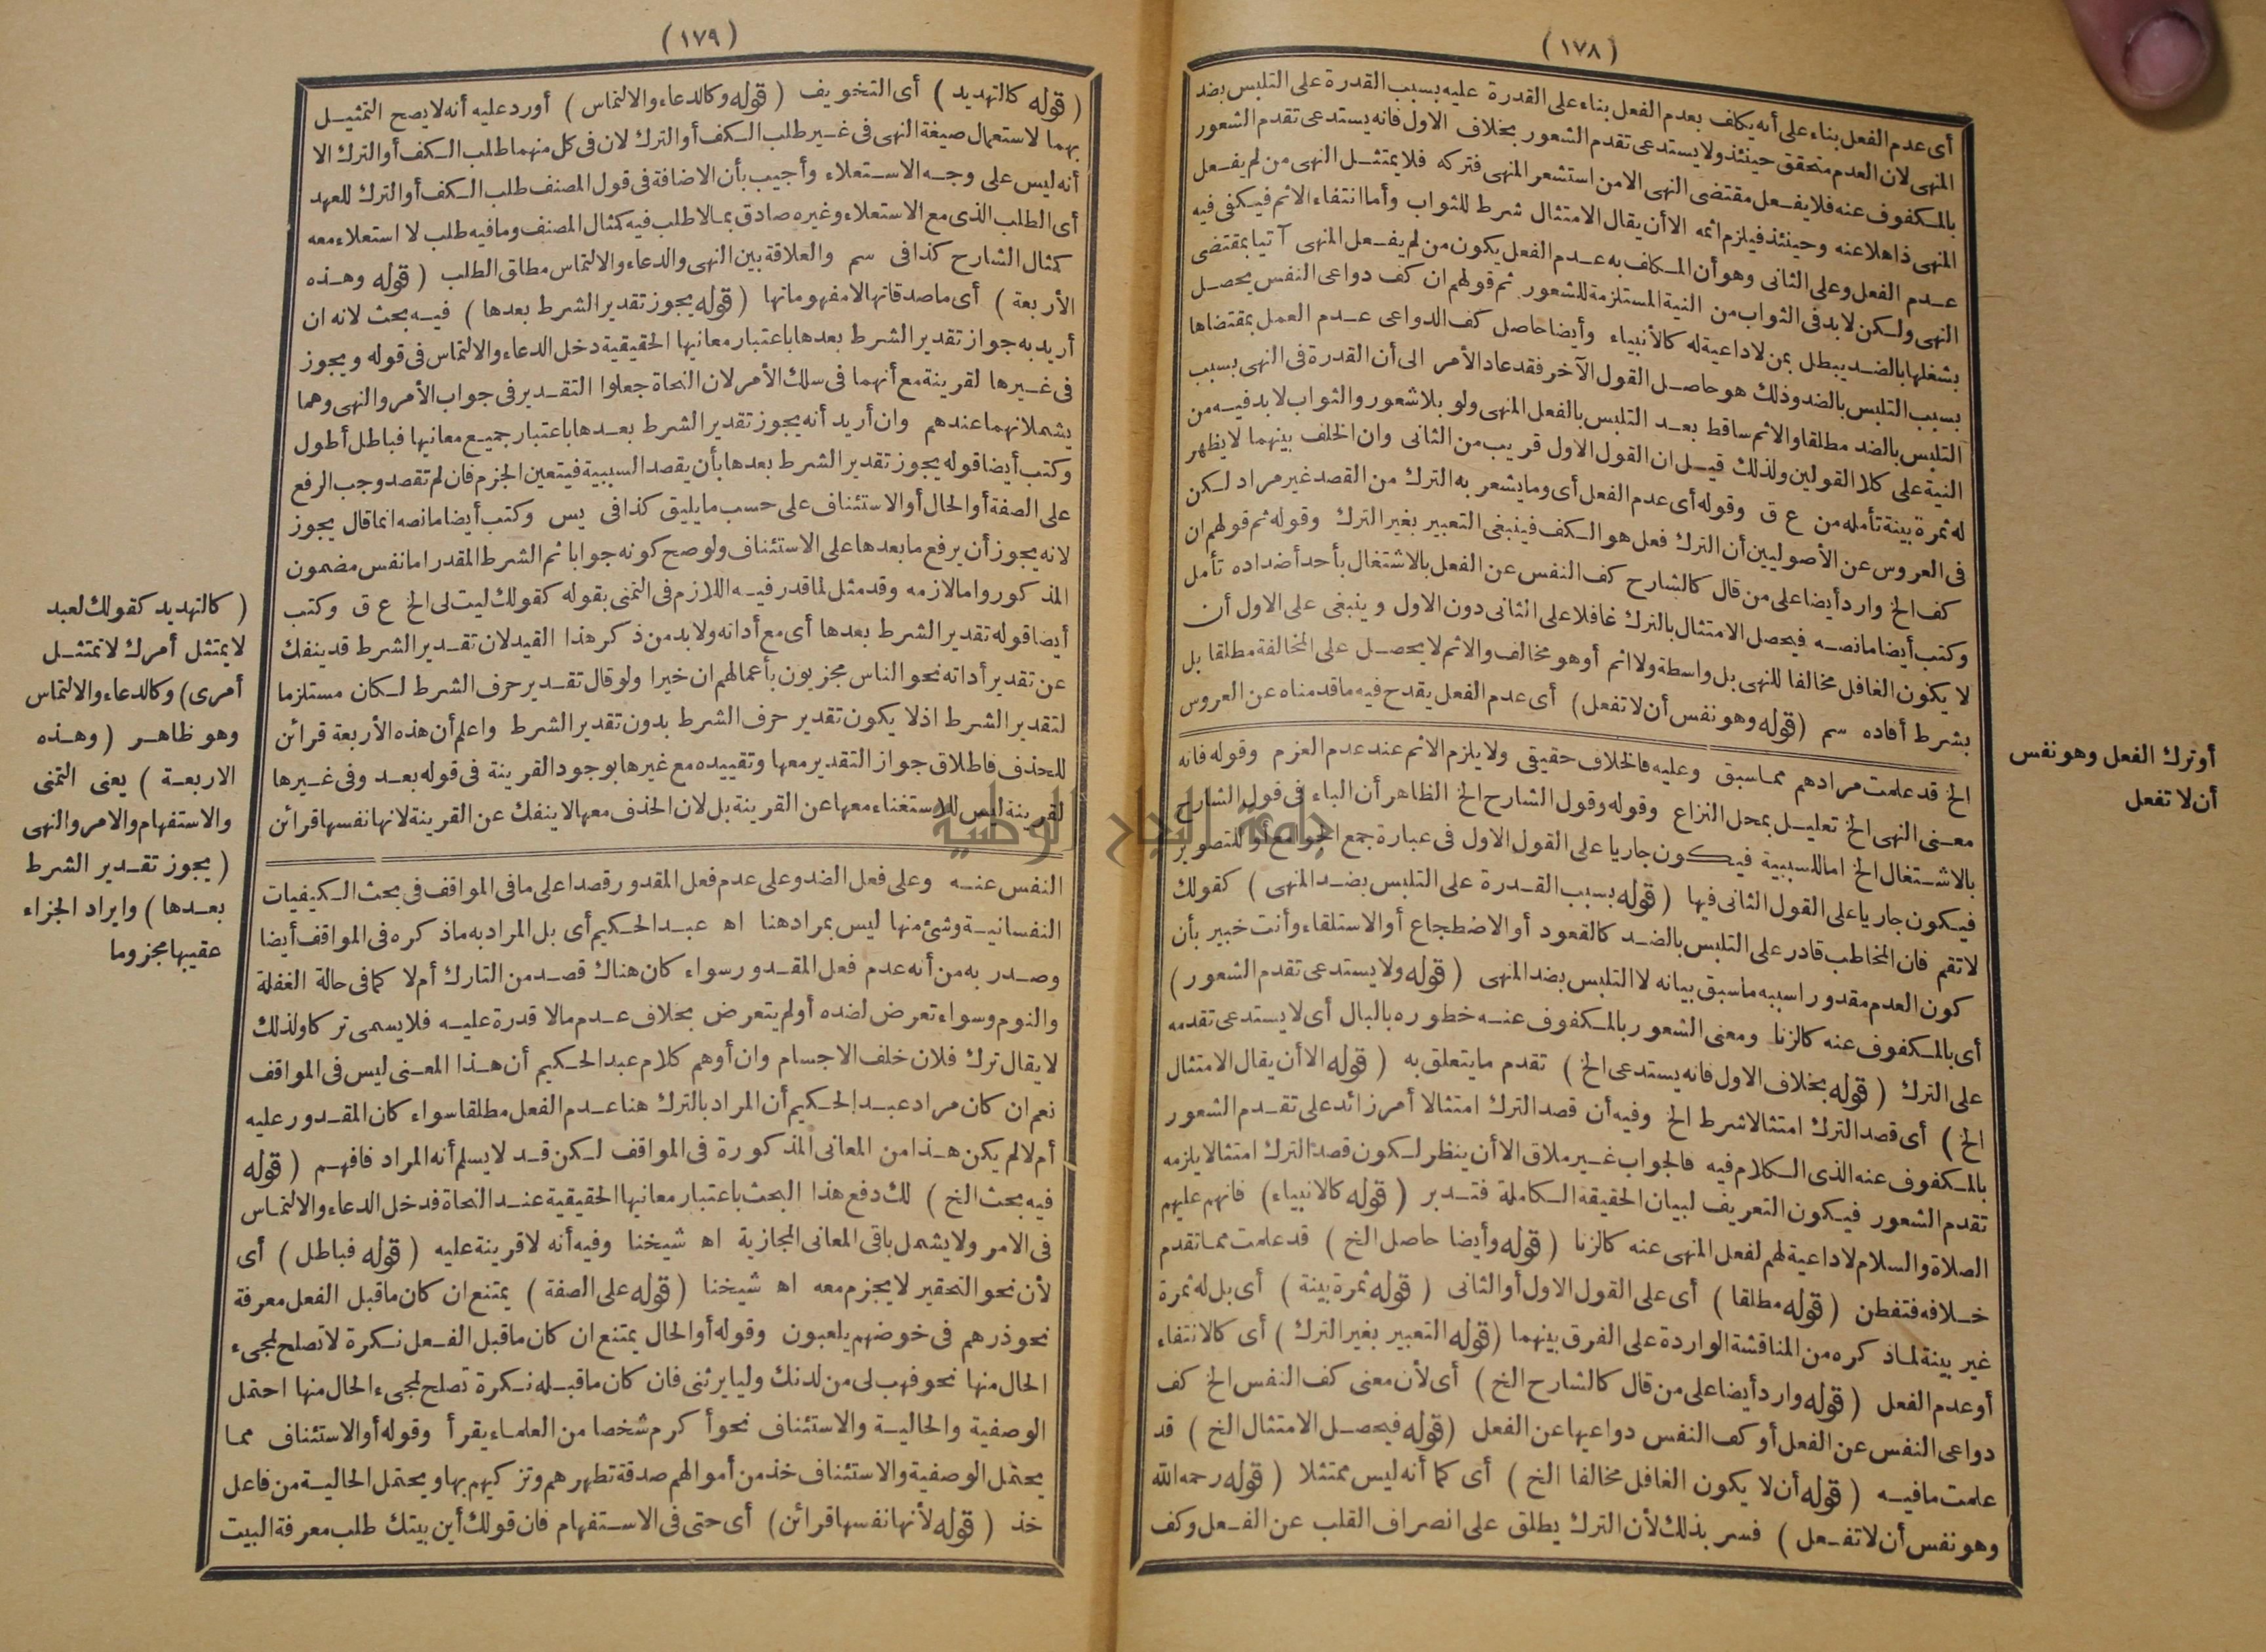 (١٧٨)
أى عدم الفعل بناء على أنه يكلف بعدم الفعل بناء على القدرة عليه بسبب القدرة على التلبس بضد
المنهى لان العدم متحقق حينئذ ولا يستدعى تقدم الشعور بخلاف الاول فانه يستدعى تقدم الشعور
بالمكفوف عنه فلا يفعل مقتضى النهى الا من استشعر المنهى فتركه فلا يمتثل النهى من لم يفعل
المنهى ذاهلا عنه وحينئذ فيلزم اثمه الا أن يقال الامتثال شرط للثواب وأما انتفاء الاثم فيكفى فيه
عدم الفعل وعلى الثانى وهو أن المكلف به عدم الفعل يكون من لم يفعل المنهى آتيا بمقتضى
النهى ولكن لا بد فى الثواب من النية المستلزمة للشعور ثم قولهم ان كف دواعى النفس يحصل
بشغلها بالضد يبطل بمن لا داعية له كالأنبياء وأيضا حاصل كف الدواعى عدم العمل بمقتضاها
بسبب التلبس بالضد وذلك هو حاصل القول الآخر فقد عاد الأمر الى أن القدرة فى النهى بسبب
التلبس بالضد مطلقا والاثم ساقط بعد التلبس بالفعل المنهى ولو بلا شعور والثواب لا بد فيه من
النية على كلا القولين ولذلك قيل ان القول الاول قريب من الثانى وان الخلف بينهما لا يظهر
له ثمرة بينة تأمله من ع ق وقوله أى عدم الفعل أى وما يشعر به الترك من القصد غير مراد لكن
فى العروس عن الأصوليين أن الترك فعل هو الكف فينبغى التعبير بغير الترك وقوله ثم قولهم ان
كف الخ وارد أيضا على من قال كالشارح كف النفس عن الفعل بالاشتغال بأحد أضداده تأمل
وكتب أيضا مانصه فيحصل الامتثال بالترك غافلا على الثانى دون الاول وينبغى على الاول أن
لا يكون الغافل مخالفا للنهى بل واسطة ولا اثم أو هو مخالف والاثم لا يحصل على المخالفة مطلقا بل
بشرط أفاده سم (قوله وهو نفس أن لا تفعل) أى عدم الفعل يقدح فيه ما قدمناه عن العروس
أو ترك الفعل وهو نفس
أن لا تفعل
الخ قد علمت مرادهم مما سبق وعليه فالخلاف حقيقى ولا يلزم الاثم عند عدم العزم وقوله فانه
معنى النهى الخ تعليل بمحل النزاع وقوله وقول الشارح الخ الظاهر أن الباء فى قول الشارح
بالاشتغال الخ اما للسببية فيكون جاريا على القول الاول فى عبارة جمع الجوامع أو للتصوير
فيكون جاريا على القول الثانى فيها (قوله بسبب القدرة على التلبس بضد المنهى) كقولك
لا تقم فان المخاطب قادر على التلبس بالضد كالقعود أو الاضطجاع أو الاستلقاء وأنت خبير بأن
كون العدم مقدورا سببه ما سبق بيانه لا التلبس بضد المنهى (قوله ولا يستدعى تقدم الشعور)
أى بالمكفوف عنه كالزنا ومعنى الشعور بالمكفوف عنه خطوره بالبال أى لا يستدعى تقدمه
على الترك (قوله بخلاف الاول فانه يستدعى الخ) تقدم ما يتعلق به (قوله الا أن يقال الامتثال
الخ) أى قصد الترك امتثالا شرط الخ وفيه أن قصد الترك امتثالا أمر زائد على تقدم الشعور
بالمكفوف عنه الذى الكلام فيه فالجواب غير ملاق الا أن ينظر لكون قصد الترك امتثالا يلزمه
تقدم الشعور فيكون التعريف لبيان الحقيقة الكاملة فتدبر (قوله كالانبياء) فانهم عليهم
الصلاة والسلام لا داعية لهم لفعل المنهى عنه كالزنا (قوله وأيضا حاصل الخ) قد علمت مما تقدم
خلافه فتفطن (قوله مطلقا) أى على القول الاول أو الثانى (قوله ثمرة بينة) أى بل له ثمرة
غير بينة لما ذكره من المناقشة الواردة على الفرق بينهما (قوله التعبير بغير الترك) أى كالانتفاء
أو عدم الفعل (قوله وارد أيضا على من قال كالشارح الخ) أى لأن معنى كف النفس الخ كف
دواعى النفس عن الفعل أو كف النفس دواعيها عن الفعل (قوله فيحصل الامتثال الخ) قد
علمت ما فيه (قوله أن لا يكون الغافل مخالفا الخ) أى كما أنه ليس ممتثلا (قوله رحمه الله
وهو نفس أن لا تفعل) فسر بذلك لأن الترك يطلق على انصراف القلب عن الفعل وكف
(١٧٩)
(قوله كالتهديد) أى التخويف (قوله وكالدعاء والالتماس) أورد عليه أنه لا يصح التمثيل
بهما لاستعمال صيغة النهى فى غير طلب الكف أو الترك لان فى كل منهما طلب الكف أو الترك الا
أنه ليس على وجه الاستعلاء وأجيب بأن الاضافة فى قول المصنف طلب الكف أو الترك للعهد
أى الطلب الذى مع الاستعلاء وغيره صادق بما لا طلب فيه كمثال المصنف وما فيه طلب لا استعلاء معه
كمثال الشارح كذا فى سم والعلاقة بين النهى والدعاء والالتماس مطلق الطلب (قوله وهذه
الأربعة) أى ماصدقاتها لا مفهوماتها (قوله يجوز تقدير الشرط بعدها) فيه بحث لانه ان
أريد به جواز تقدير الشرط بعدها باعتبار معانيها الحقيقية دخل الدعاء والالتماس فى قوله ويجوز
فى غيرها لقرينة مع أنهما فى سلك الأمر لان النحاة جعلوا التقدير فى جواب الأمر والنهى وهما
يشملانهما عندهم وان أريد أنه يجوز تقدير الشرط بعدها باعتبار جميع معانيها فباطل أطول
وكتب أيضا قوله يجوز تقدير الشرط بعدها بأن يقصد السببية فيتعين الجزم فان لم تقصد وجب الرفع
على الصفة أو الحال أو الاستئناف على حسب ما يليق كذا فى يس وكتب أيضا مانصه انما قال يجوز
لانه يجوز أن يرفع ما بعدها على الاستئناف ولو صح كونه جوابا ثم الشرط المقدر اما نفس مضمون
المذكور واما لازمه وقد مثل لما قدر فيه اللازم فى التمنى بقوله كقولك ليت لى الخ ع ق وكتب
أيضا قوله تقدير الشرط بعدها أى مع أداته ولا بد من ذكر هذا القيد لان تقدير الشرط قد ينفك
عن تقدير أداته نحو الناس مجزيون بأعمالهم ان خيرا ولو قال تقدير حرف الشرط لكان مستلزما
لتقدير الشرط اذ لا يكون تقدير حرف الشرط بدون تقدير الشرط واعلم أن هذه الأربعة قرائن
للحذف فاطلاق جواز التقدير معها وتقييده مع غيرها بوجود القرينة فى قوله بعد وفى غيرها
لقرينة ليس للاستغناء معها عن القرينة بل لان الحذف معها لا ينفك عن القرينة لانها نفسها قرائن
(كالتهديد كقولك لعبد
لا يمتثل أمرك لا تمتثل
أمرى) وكالدعاء والالتماس
وهو ظاهر (وهذه
الاربعة) يعنى التمنى
والاستفهام والامر والنهى
(يجوز تقدير الشرط
بعدها) وايراد الجزاء
عقيبها مجزوما
النفس عنه وعلى فعل الضد وعلى عدم فعل المقدور قصدا على ما فى المواقف فى بحث الكيفيات
النفسانية وشئ منها ليس بمراد هنا اه عبد الحكيم أى بل المراد به ما ذكره فى المواقف أيضا
وصدر به من أنه عدم فعل المقدور سواء كان هناك قصد من التارك أم لا كما فى حالة الغفلة
والنوم وسواء تعرض لضده أو لم يتعرض بخلاف عدم ما لا قدرة عليه فلا يسمى تركا ولذلك
لا يقال ترك فلان خلف الاجسام وان أوهم كلام عبد الحكيم أن هذا المعنى ليس فى المواقف
نعم ان كان مراد عبد الحكيم أن المراد بالترك هنا عدم الفعل مطلقا سواء كان المقدور عليه
أم لا لم يكن هذا من المعانى المذكورة فى المواقف لكن قد لا يسلم أنه المراد فافهم (قوله
فيه بحث الخ) لك دفع هذا البحث باعتبار معانيها الحقيقية عند النحاة فدخل الدعاء والالتماس
فى الامر ولا يشمل باقى المعانى المجازية اه شيخنا وفيه أنه لا قرينة عليه (قوله فباطل) أى
لأن نحو التحقير لا يجزم معه اه شيخنا (قوله على الصفة) يمتنع ان كان ما قبل الفعل معرفة
نحو ذرهم فى خوضهم يلعبون وقوله أو الحال يمتنع ان كان ما قبل الفعل نكرة لا تصلح لمجىء
الحال منها نحو فهب لى من لدنك وليا يرثنى فان كان ما قبله نكرة تصلح لمجىء الحال منها احتمل
الوصفية والحالية والاستئناف نحو أكرم شخصا من العلماء يقرأ وقوله أو الاستئناف مما
يحتمل الوصفية والاستئناف خذ من أموالهم صدقة تطهرهم وتزكيهم بها ويحتمل الحالية من فاعل
خذ (قوله لأنها نفسها قرائن) أى حتى فى الاستفهام فان قولك أين بيتك طلب معرفة البيت
جامعة النجاح الوطنية